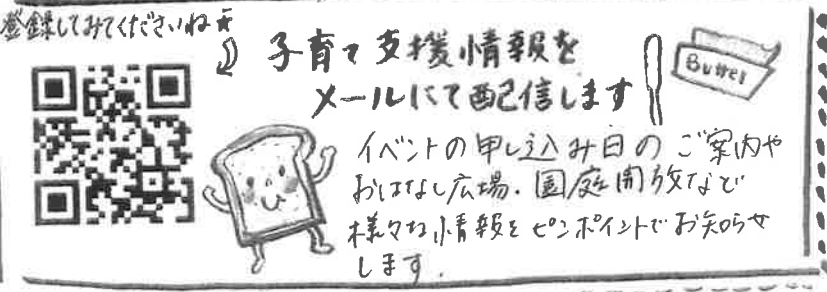 登録してみてくださいね★
子育て支援情報を
メールにて配信します
Butter
イベントの申し込み日のご案内や
おはなし広場・園庭開放など
様々な情報をピンポイントでお知らせ
します.